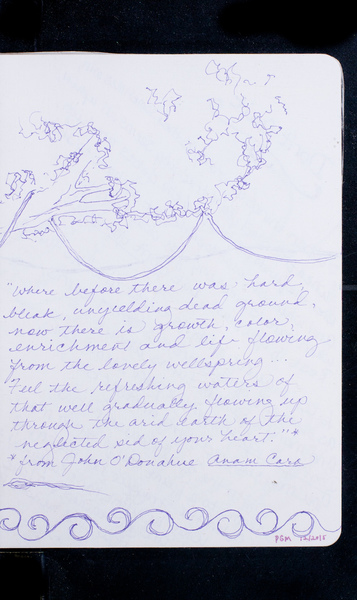 "Where before there was hard,
bleak, unyielding dead ground,
now there is growth, color,
enrichment and life flowing
from the lovely wellspring...
Feel the refreshing waters of
that well gradually flowing up
through the arid earth of the
neglected sid of your heart."*
*from John O'Donahue Anam Cara
PGM 12/2015